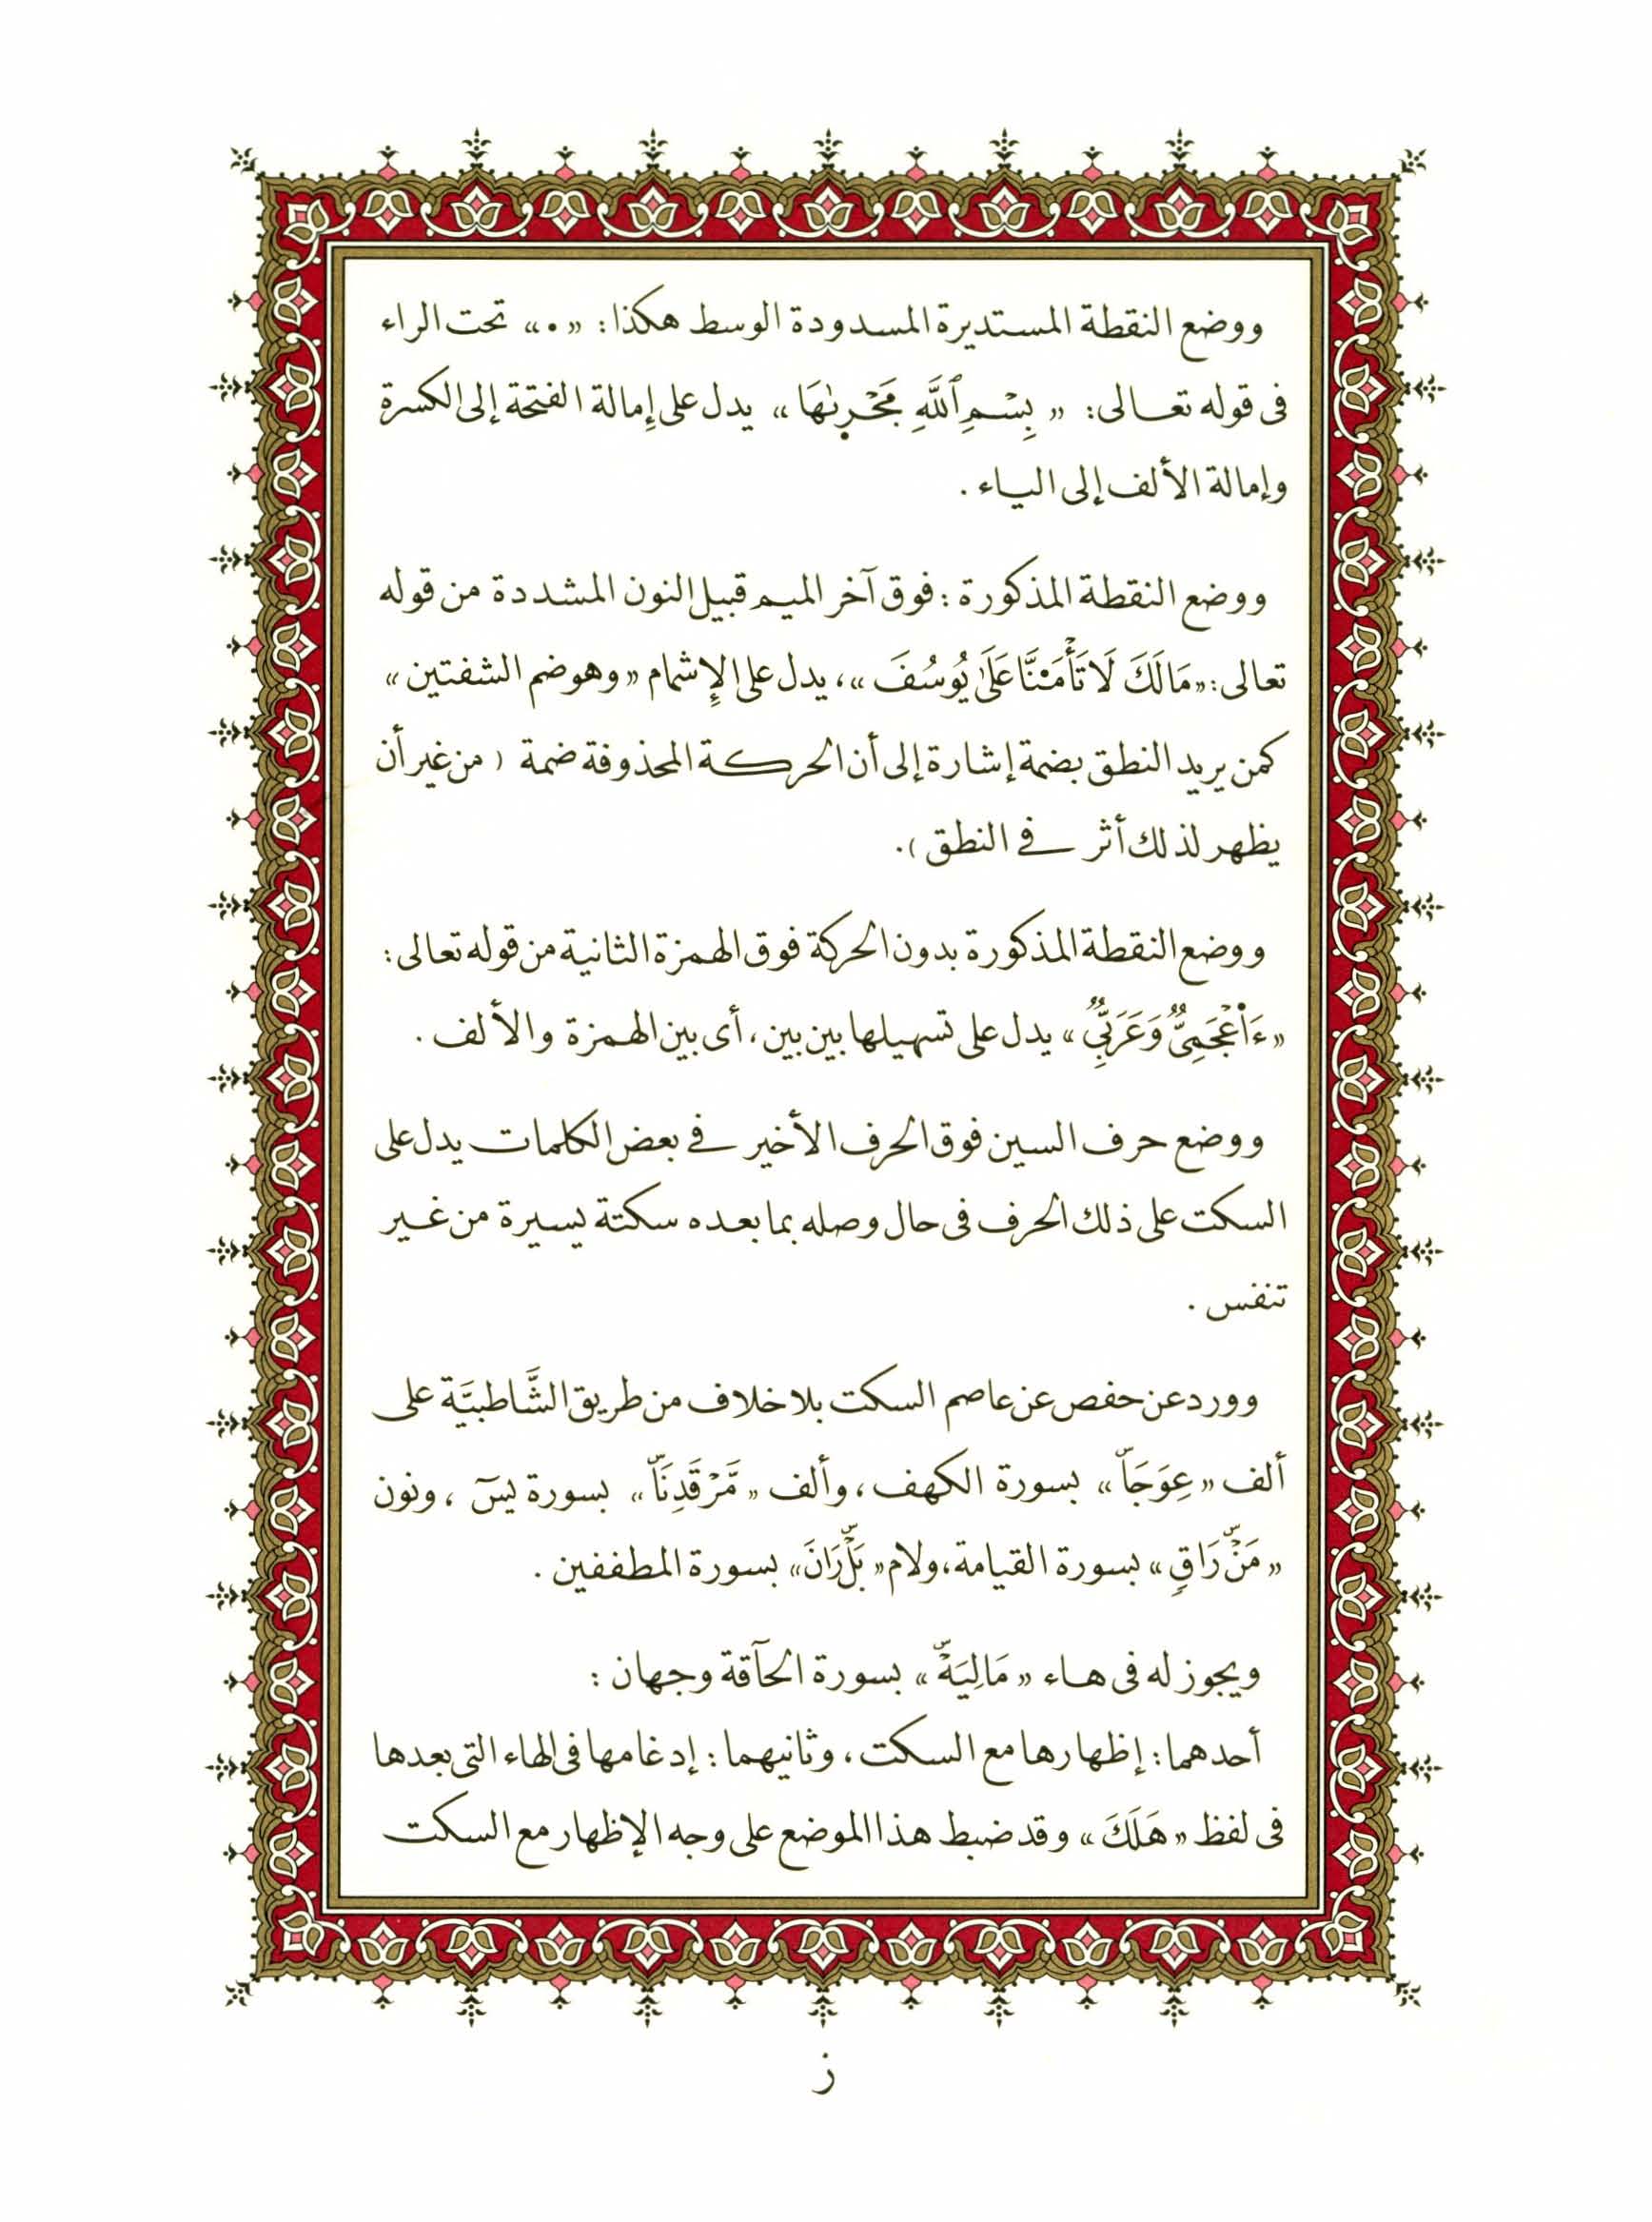 ووضع النقطة المستديرة المسدودة الوسط هكذا: «•» تحت الراء
فى قوله تعالى: «بِسْمِ ٱللَّهِ مَجْر۪ىٰهَا» يدل على إمالة الفتحة إلى الكسرة
وإمالة الألف إلى الياء .
ووضع النقطة المذكورة : فوق آخر الميم قبيل النون المشددة من قوله
تعالى : «مَالَكَ لَا تَأْمَ۬نَّا عَلَىٰ يُوسُفَ»، يدل على الإشمام «وهو ضم الشفتين»
كمن يريد النطق بضمة إشارة إلى أن الحركة المحذوفة ضمة ( من غير أن
يظهر لذلك أثر فى النطق ).
ووضع النقطة المذكورة بدون الحركة فوق الهمزة الثانية من قوله تعالى :
«ءَا۬عْجَمِىٌّ وَعَرَبِىٌّ» يدل على تسهيلها بين بين ، أى بين الهمزة والألف .
ووضع حرف السين فوق الحرف الأخير فى بعض الكلمات يدل على
السكت على ذلك الحرف فى حال وصله بما بعده سكتة يسيرة من غير
تنفس .
وورد عن حفص عن عاصم السكت بلا خلاف من طريق الشَّاطبيَّة على
ألف «عِوَجَاۜ» بسورة الكهف ، وألف «مَّرْقَدِنَاۜ» بسورة يسٓ ، ونون
«مَنْۜ رَاقٍ» بسورة القيامة، ولام «بَلْۜ رَانَ» بسورة المطففين .
ويجوز له فى هاء «مَالِيَهْۜ» بسورة الحآقة وجهان :
أحدهما : إظهارها مع السكت ، وثانيهما : إدغامها فى الهاء التى بعدها
فى لفظ «هَلَكَ» وقد ضبط هذا الموضع على وجه الإظهار مع السكت
ز